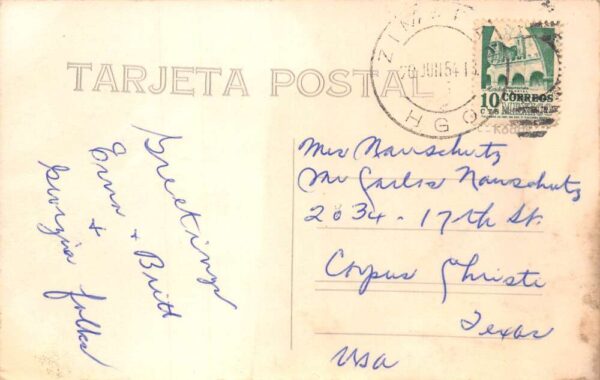 TARJETA POSTAL
ZIMAPAN
20 JUN 54 13
HGO
10 CORREOS
CTS
KODAK
Greetings
Erna + Britt
+
Georgia folks
Mrs Nauschutz
Mr Carlos Nauschutz
2034 - 17th St.
Corpus Christi
Texas
USA